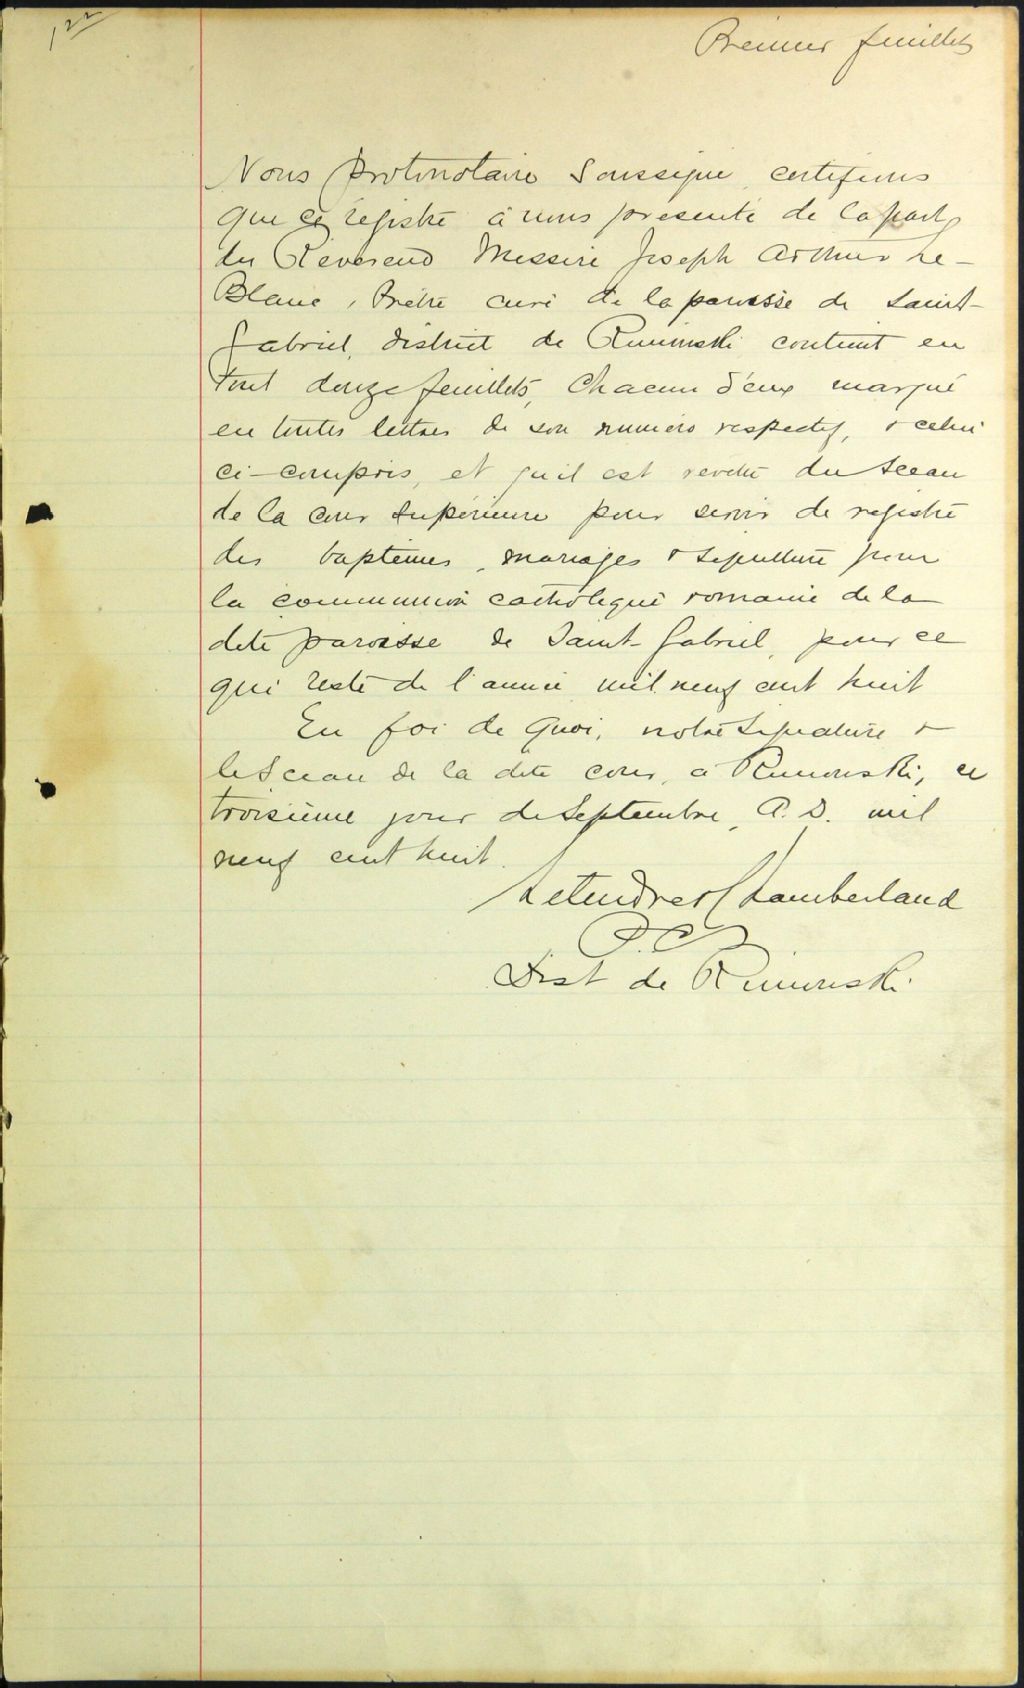 122
Premier feuillet
Nous Protonotaire Soussigné, certifions
que ce registre à nous présenté de la part
du Révérend Messire Joseph Arthur Le-
Blanc, Prêtre curé de la paroisse de Saint-
Gabriel, district de Rimouski contient en
tout douze feuillets, chacun d'eux marqué
en toutes lettres de son numéro respectif, & celui
ci-compris, et qu'il est revêtu du Sceau
de la cour Supérieure pour servir de registre
des baptêmes, mariages & sépulture pour
la communion catholique romaine de la
dite paroisse de Saint-Gabriel, pour ce
qui reste de l'année mil neuf cent huit
En foi de quoi, notre Signature &
le Sceau de la dite cour, à Rimouski, ce
troisième jour de Septembre, A.D. mil
neuf cent huit.
Letendre & Chamberland
P.C.S.
Dist de Rimouski.